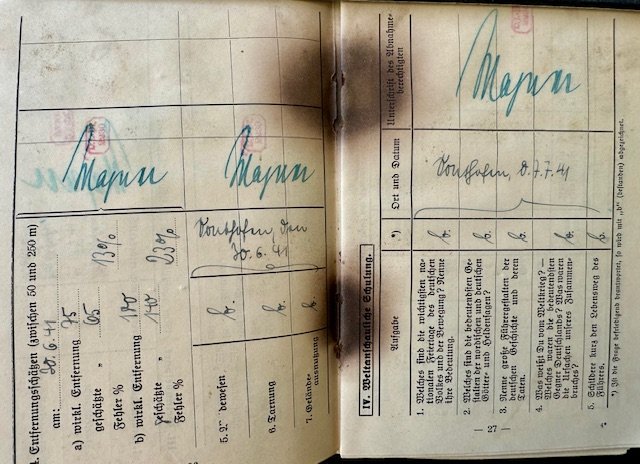 4. Entfernungsschätzen (zwischen 50 und 250 m)
am: 30.6.41
a) wirkl. Entfernung 75
geschätzte „ 65
Fehler % 13%
b) wirkl. Entfernung
geschätzte „ 140
Fehler % 23%
5.
6. Tarnung b.
7. Gelände-
ausnutzung b.
Sonthofen, den
30.6.41
IV. Weltanschauliche Schulung.
Aufgabe
*)
Ort und Datum
Unterschrift des Abnahme-
berechtigten
1. Welches sind die wichtigsten na-
tionalen Feiertage des deutschen
Volkes und der Bewegung? Nenne
ihre Bedeutung.
b.
2. Welches sind die bedeutendsten Ge-
stalten der nordischen und deutschen
Götter- und Heldensagen?
b.
3. Nenne große Führergestalten der
deutschen Geschichte und deren
Taten.
b.
4. Was weißt Du vom Weltkrieg? —
Welches waren die bedeutendsten
Gegner Deutschlands? Was waren
die Ursachen unseres Zusammen-
bruches?
b.
5. Schildere kurz den Lebensweg des
Führers.
b.
Sonthofen, d. 7.7.41
*) Ist die Frage befriedigend beantwortet, so wird mit „b“ (bestanden) abgezeichnet.
— 27 —
4*